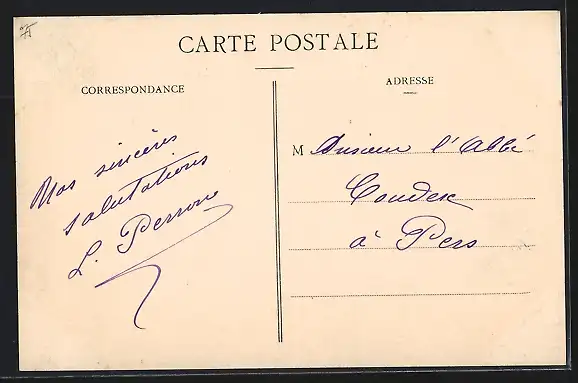 CARTE POSTALE
CORRESPONDANCE
ADRESSE
Nos sincères
salutations
L. Perrone
Monsieur l'Abbé
Coudex
à Pers